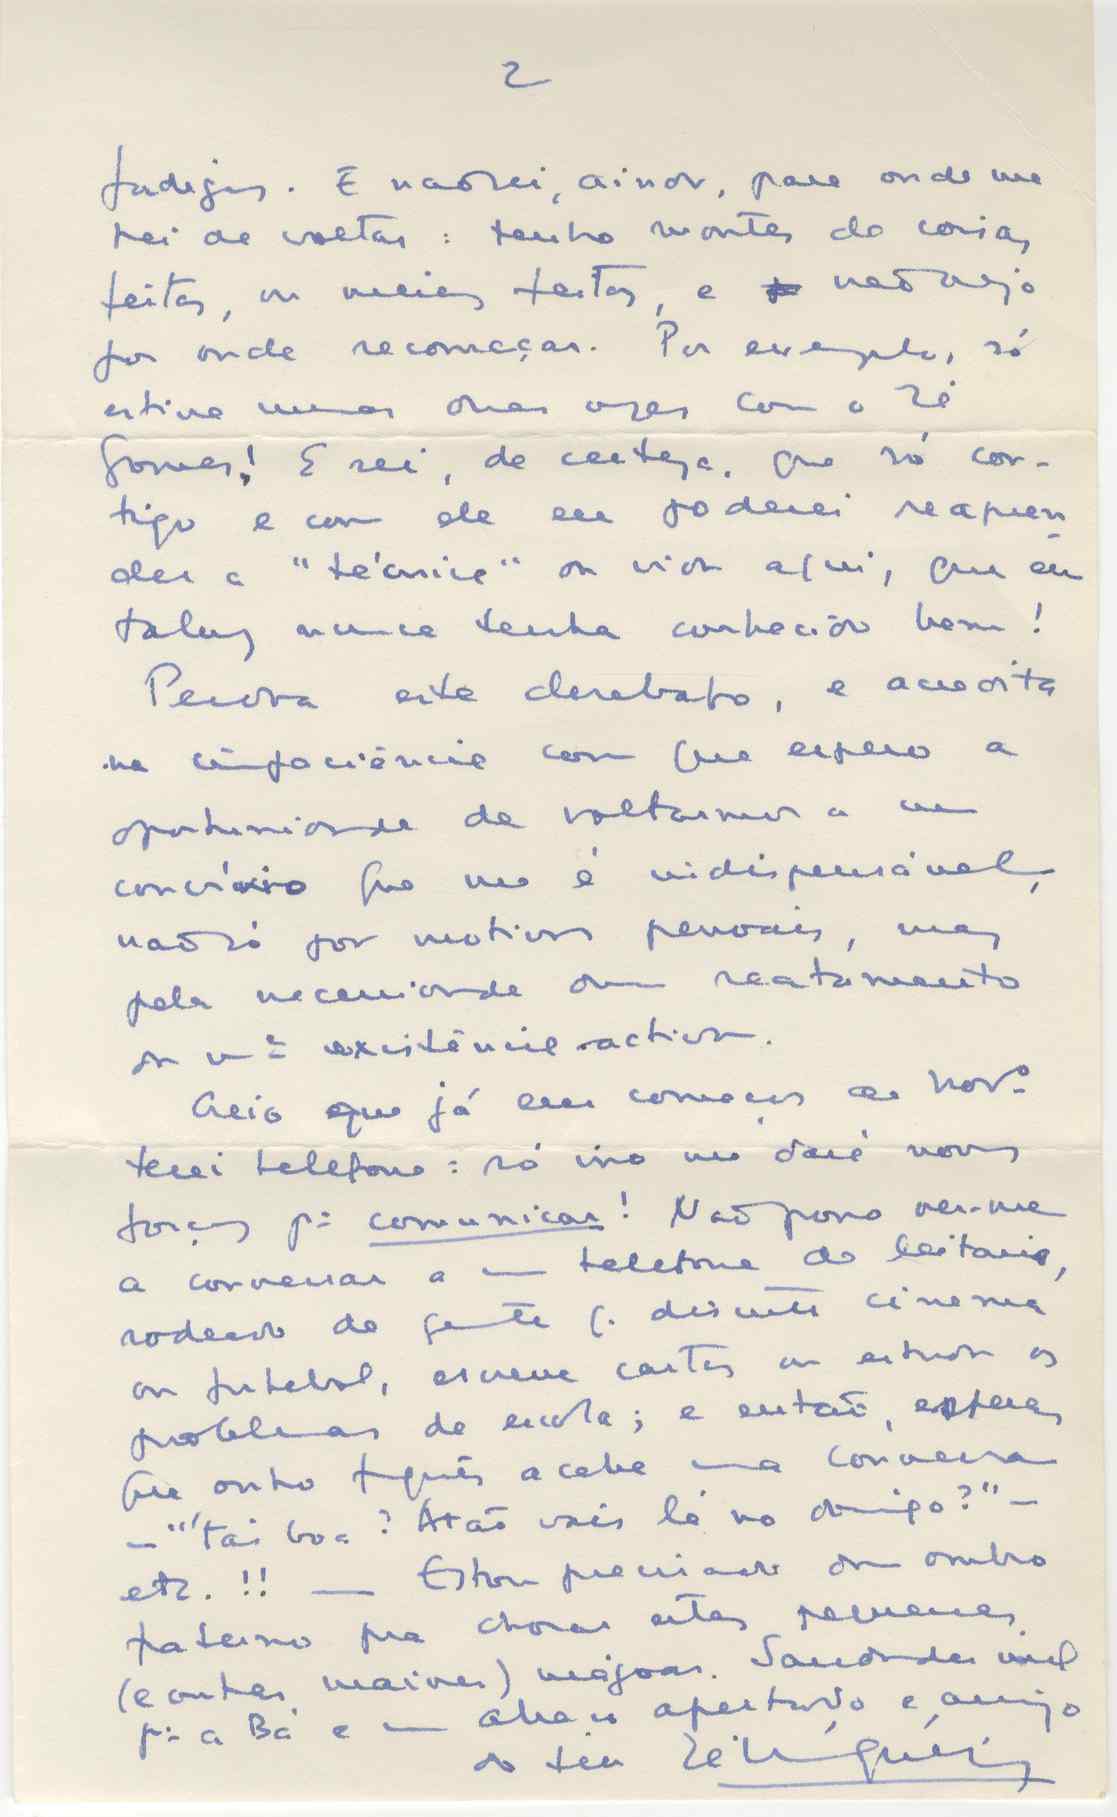 2
fadigas. E não sei, ainda, para onde me
hei de voltar: tenho montes de coisas
feitas, ou meias feitas, e não vejo
por onde recomeçar. Por exemplo, só
estive umas duas vezes com o Zé
Gomes! E sei, de certeza, que só con-
tigo e com ele eu poderei reapren-
der a "técnica" da vida aqui, que eu
talvez nunca tenha conhecido bem!
Perdoa este desabafo, e acredita
na impaciência com que espero a
oportunidade de voltarmos a um
convívio que me é indispensável,
não só por motivos pessoais, mas
pela necessidade dum reatamento
da mª existência activa.
Creio que já em começos de Novº
terei telefone: só isso me dará novas
forças pª comunicar! Não posso ver-me
a conversar a um telefone de leitaria,
rodeado de gente q. discute cinema
ou futebol, escreve cartas ou estuda os
problemas da escola; e então, esperas
que outro freguês acabe uma conversa
— "'Tás boa? Atão vais lá no domigo?" —
etc. !! — Estou precisado dum ombro
fraterno pra chorar estas pequenas
(e outras maiores) mágoas. Saudades mil
pª a Bá e um abraço apertado e amigo
do teu Zé Miguéis